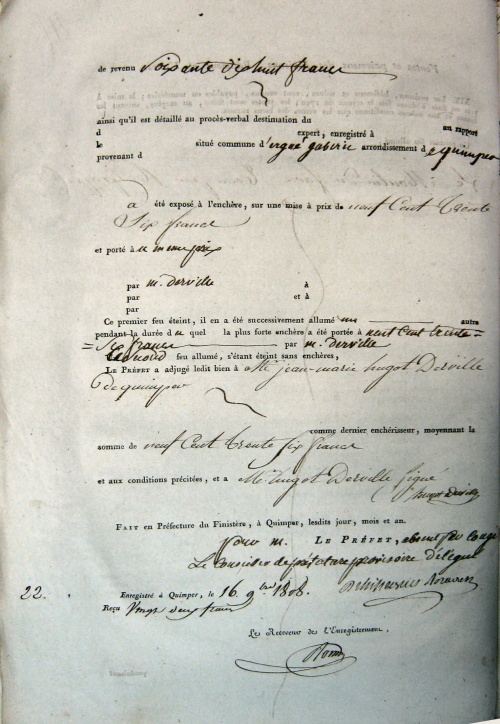 de revenu Soixante dix huit francs
ainsi qu'il est détaillé au procès-verbal destimation du
d expert, enregistré à au rapport
le situé commune d'ergué gaberic arrondissement de quimper
provenant d
a été exposé à l'enchère, sur une mise à prix de neuf Cent trente
Six francs
et porté à u meme prix
par m. derville à
par et à
par
Ce premier feu éteint, il en a été successivement allumé un autre
pendant la durée du quel la plus forte enchère a été portée à neuf cent trente =
= Six francs par m. derville
le second feu allumé, s'étant éteint sans enchères,
LE PRÉFET a adjugé ledit bien à Mr. jean-marie hugot Derville
de quimper
comme dernier enchérisseur, moyennant la
somme de neuf Cent trente six francs
et aux conditions précitées, et a Mr. hugot Derville signé
hugot Derville
FAIT en Préfecture du Finistère, à Quimper, lesdits jour, mois et an.
pour m. LE PRÉFET, absent par congé
Le Conseiller de préfecture provisoire délégué
22. Enregistré à Quimper, le 16 9bre 1808.
Reçu Vingt deux francs
Le Receveur de l'Enregistrement,